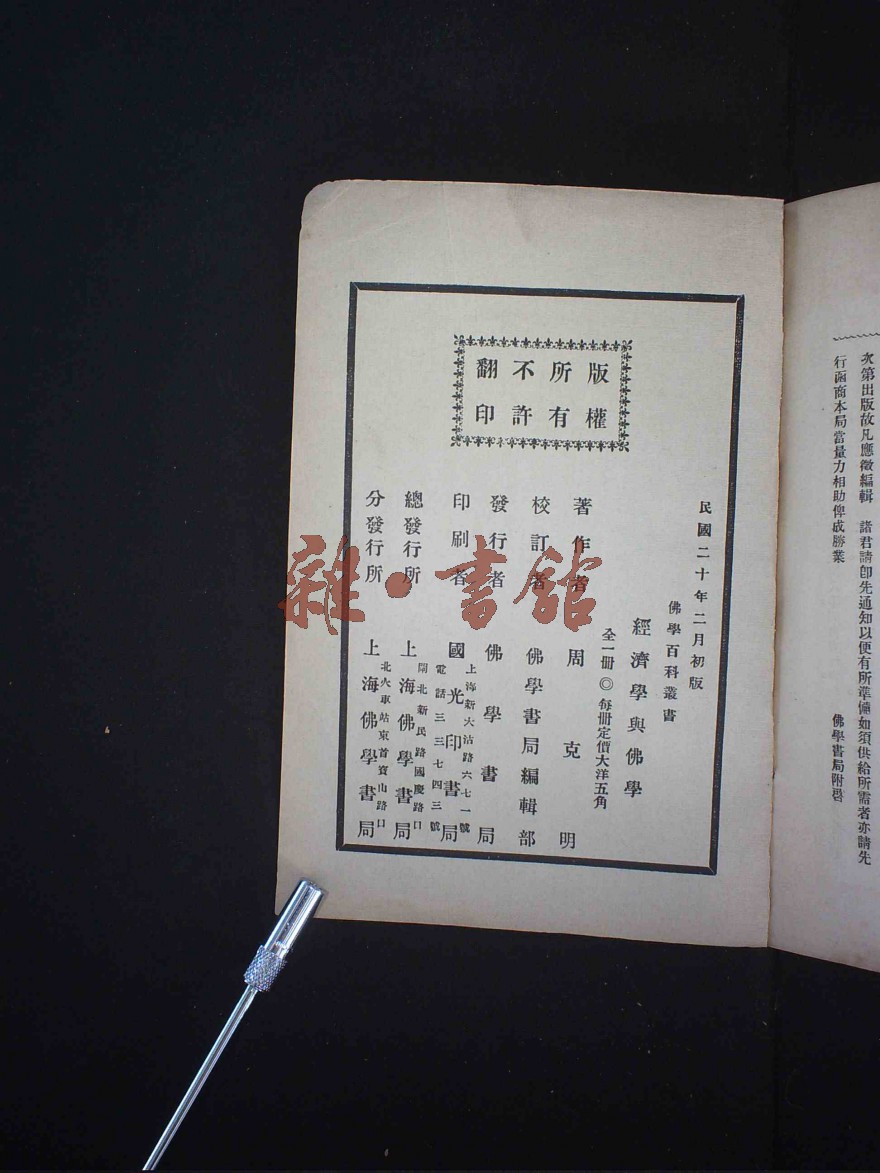 次第出版故凡應徵編輯　諸君請卽先通知以便有所準備如須供給所需者亦請先
行函商本局當量力相助俾成勝業
佛學書局附啓
版權
所有
不許
翻印
民國二十年二月初版
佛學百科叢書
經濟學與佛學
全一冊◎每冊定價大洋五角
著作者　周克明
校訂者　佛學書局編輯部
發行者　佛學書局
印刷者　國光印書局
上海新大沽路六七一號
電話三三七四三號
總發行所　上海佛學書局
閘北新民路國慶路口
分發行所　上海佛學書局
北火車站東首寶山路口
雜·書館